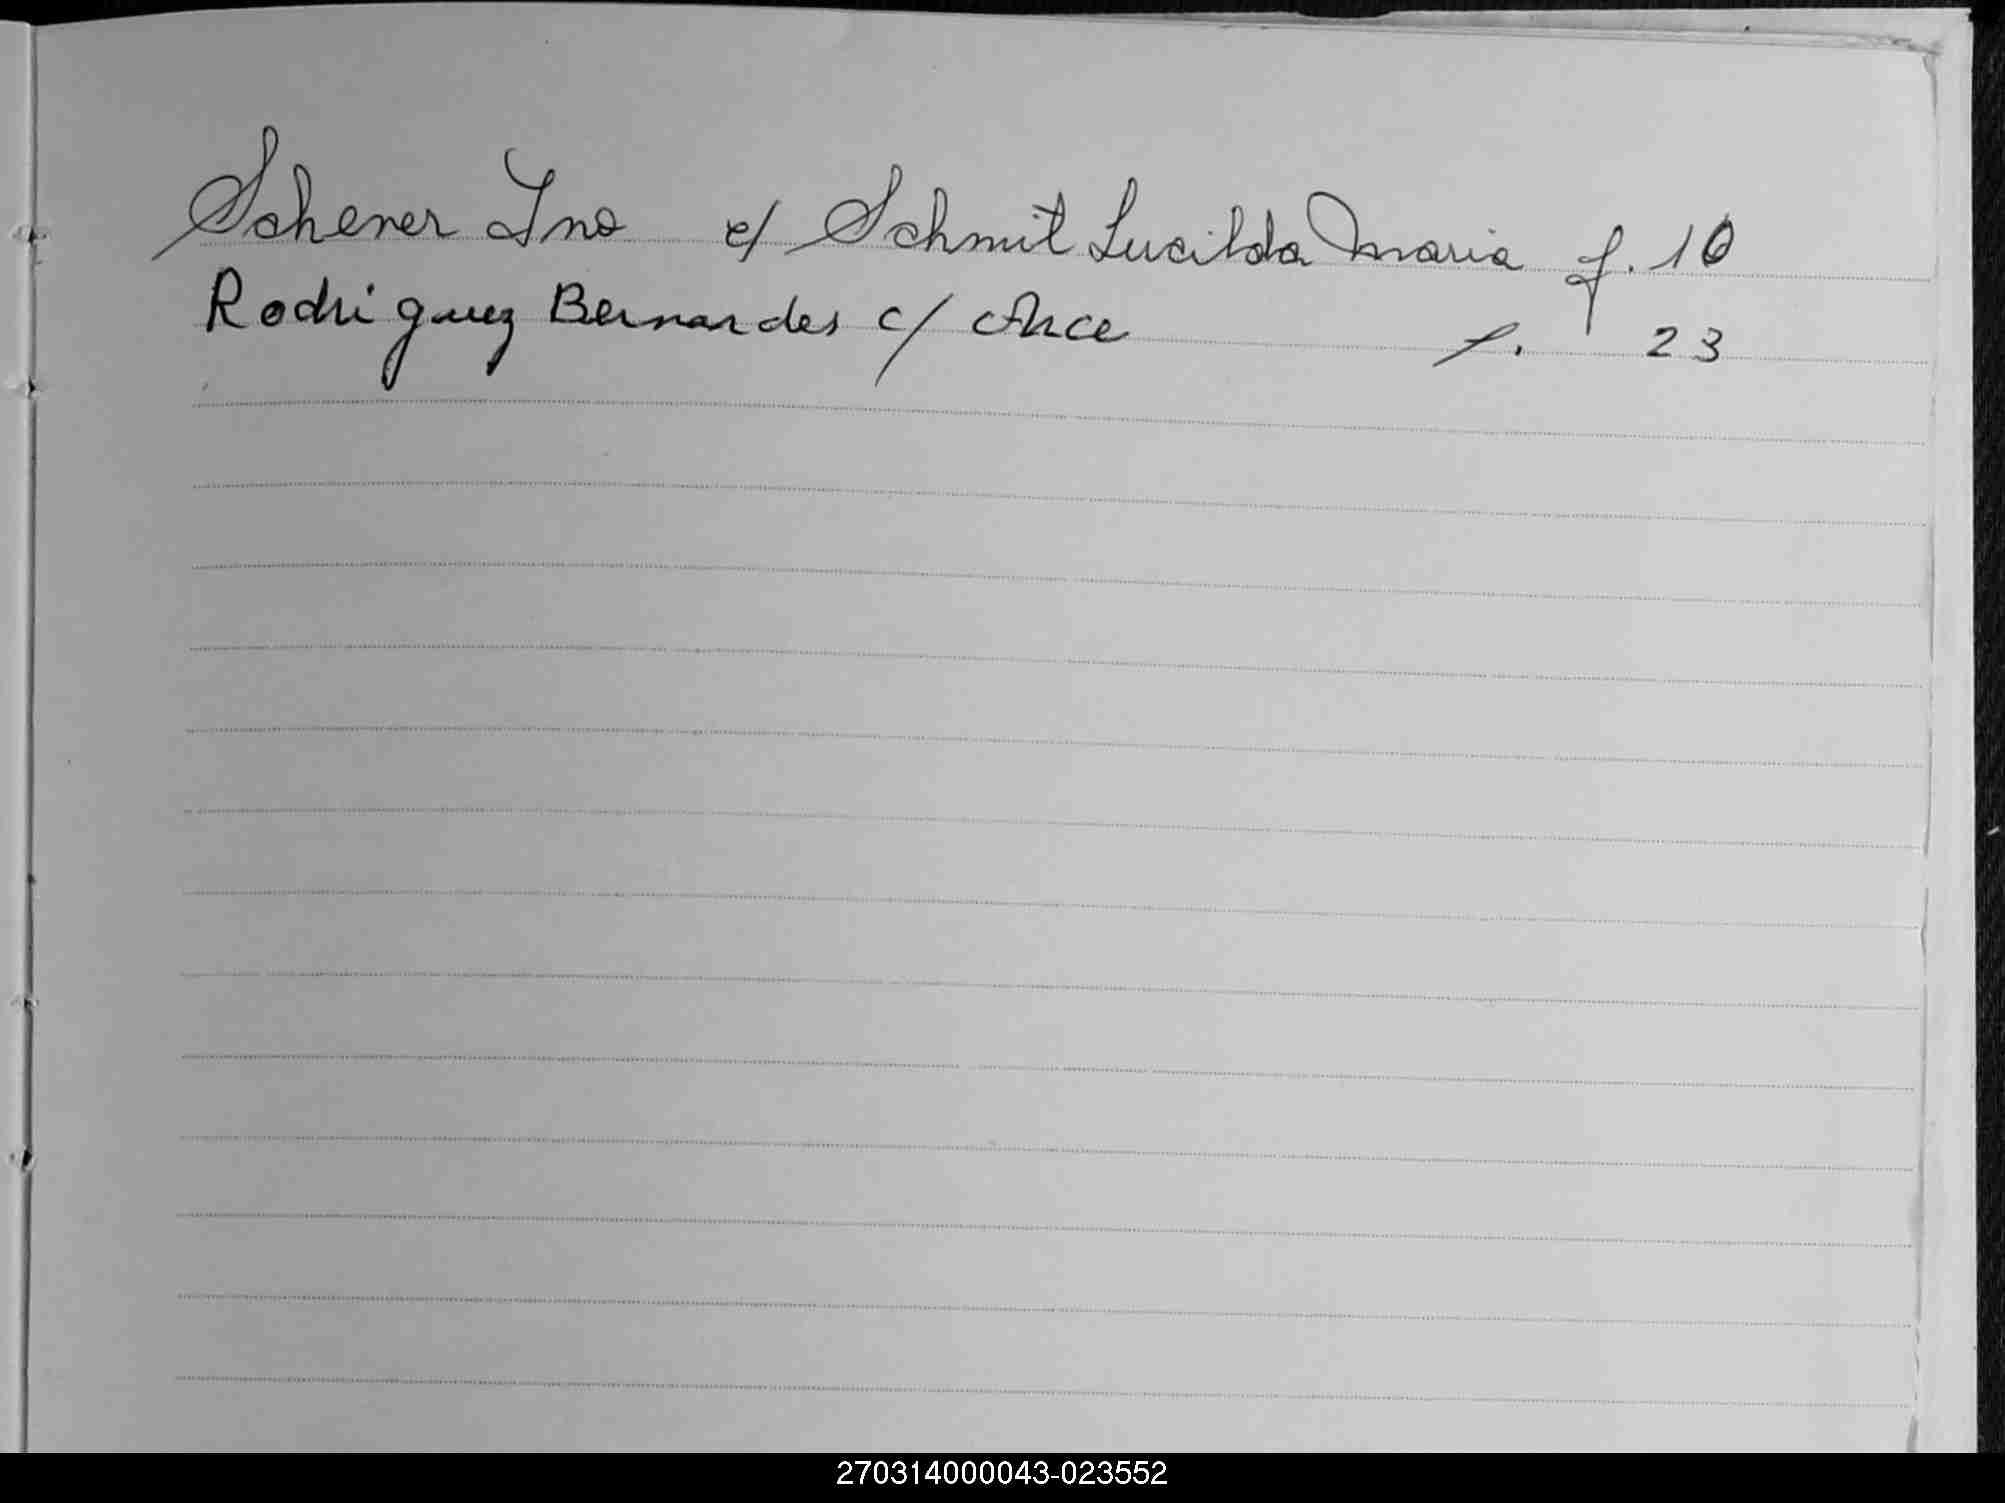 Schener Ino c/ Schmit Lucilda Maria f. 10
Rodriguez Bernardes c/ Arce f. 23
270314000043-023552